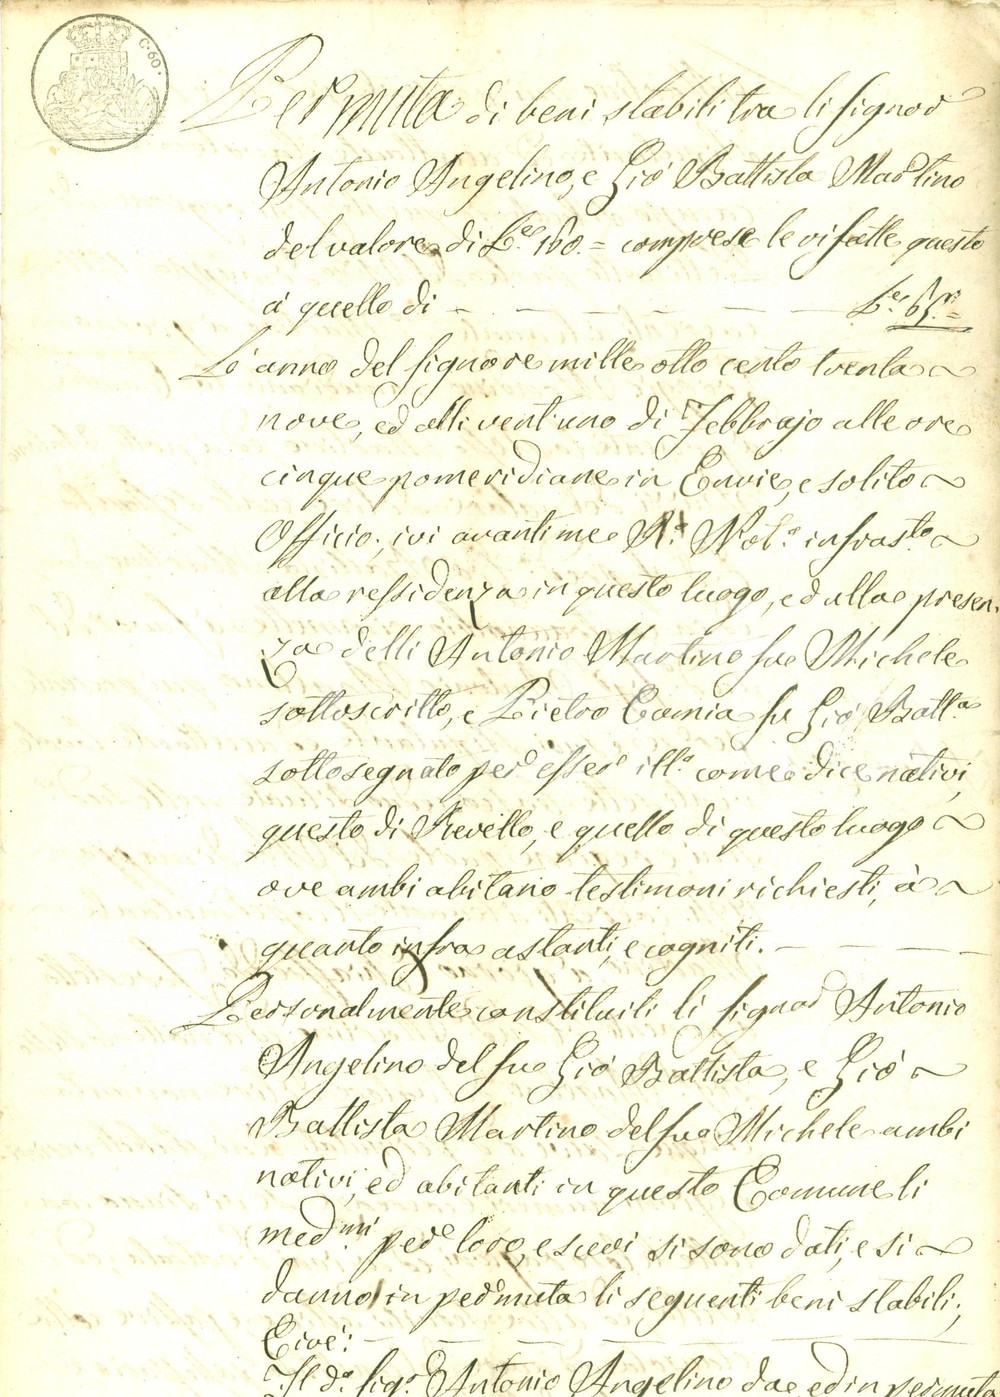 C. 60.
Permuta di beni stabili tra li Signor
Antonio Angelino, e Gio' Battista Martino
del valore di L.e 160. = comprese le rifatte questo
a quello di — — — — — L.e 65.ri =
L'anno del Signore mille otto cento trenta ~
nove, ed alli vent'uno di Febbrajo alle ore
cinque pomeridiane in Envie, e solito ~
Officio, ivi avanti me R.o Not.o infras.to ~
alla ressidenza in questo luogo, ed alla presen-
za delli Antonio Martino fu Michele
sottoscritto, e Pietro Comia fu Gio' Batt.a
sottosegnato per esser ill.o come dice nativi,
questo di Revello, e quello di questo luogo ~
ove ambi abitano testimoni richiesti, à ~
quanto infra astanti, e cogniti. — — —
Personalmente constituiti li Signor Antonio
Angelino del fu Gio' Battista, e Gio' ~
Battista Martino del fu Michele ambi
nativi, ed abitanti in questo Comune li
med.mi per loro, e suoi si sono dati, e si ~
danno in permuta li seguenti beni stabili;
Cioè: — — — —
Il d.o Sig.r Antonio Angelino da, ed in permuta